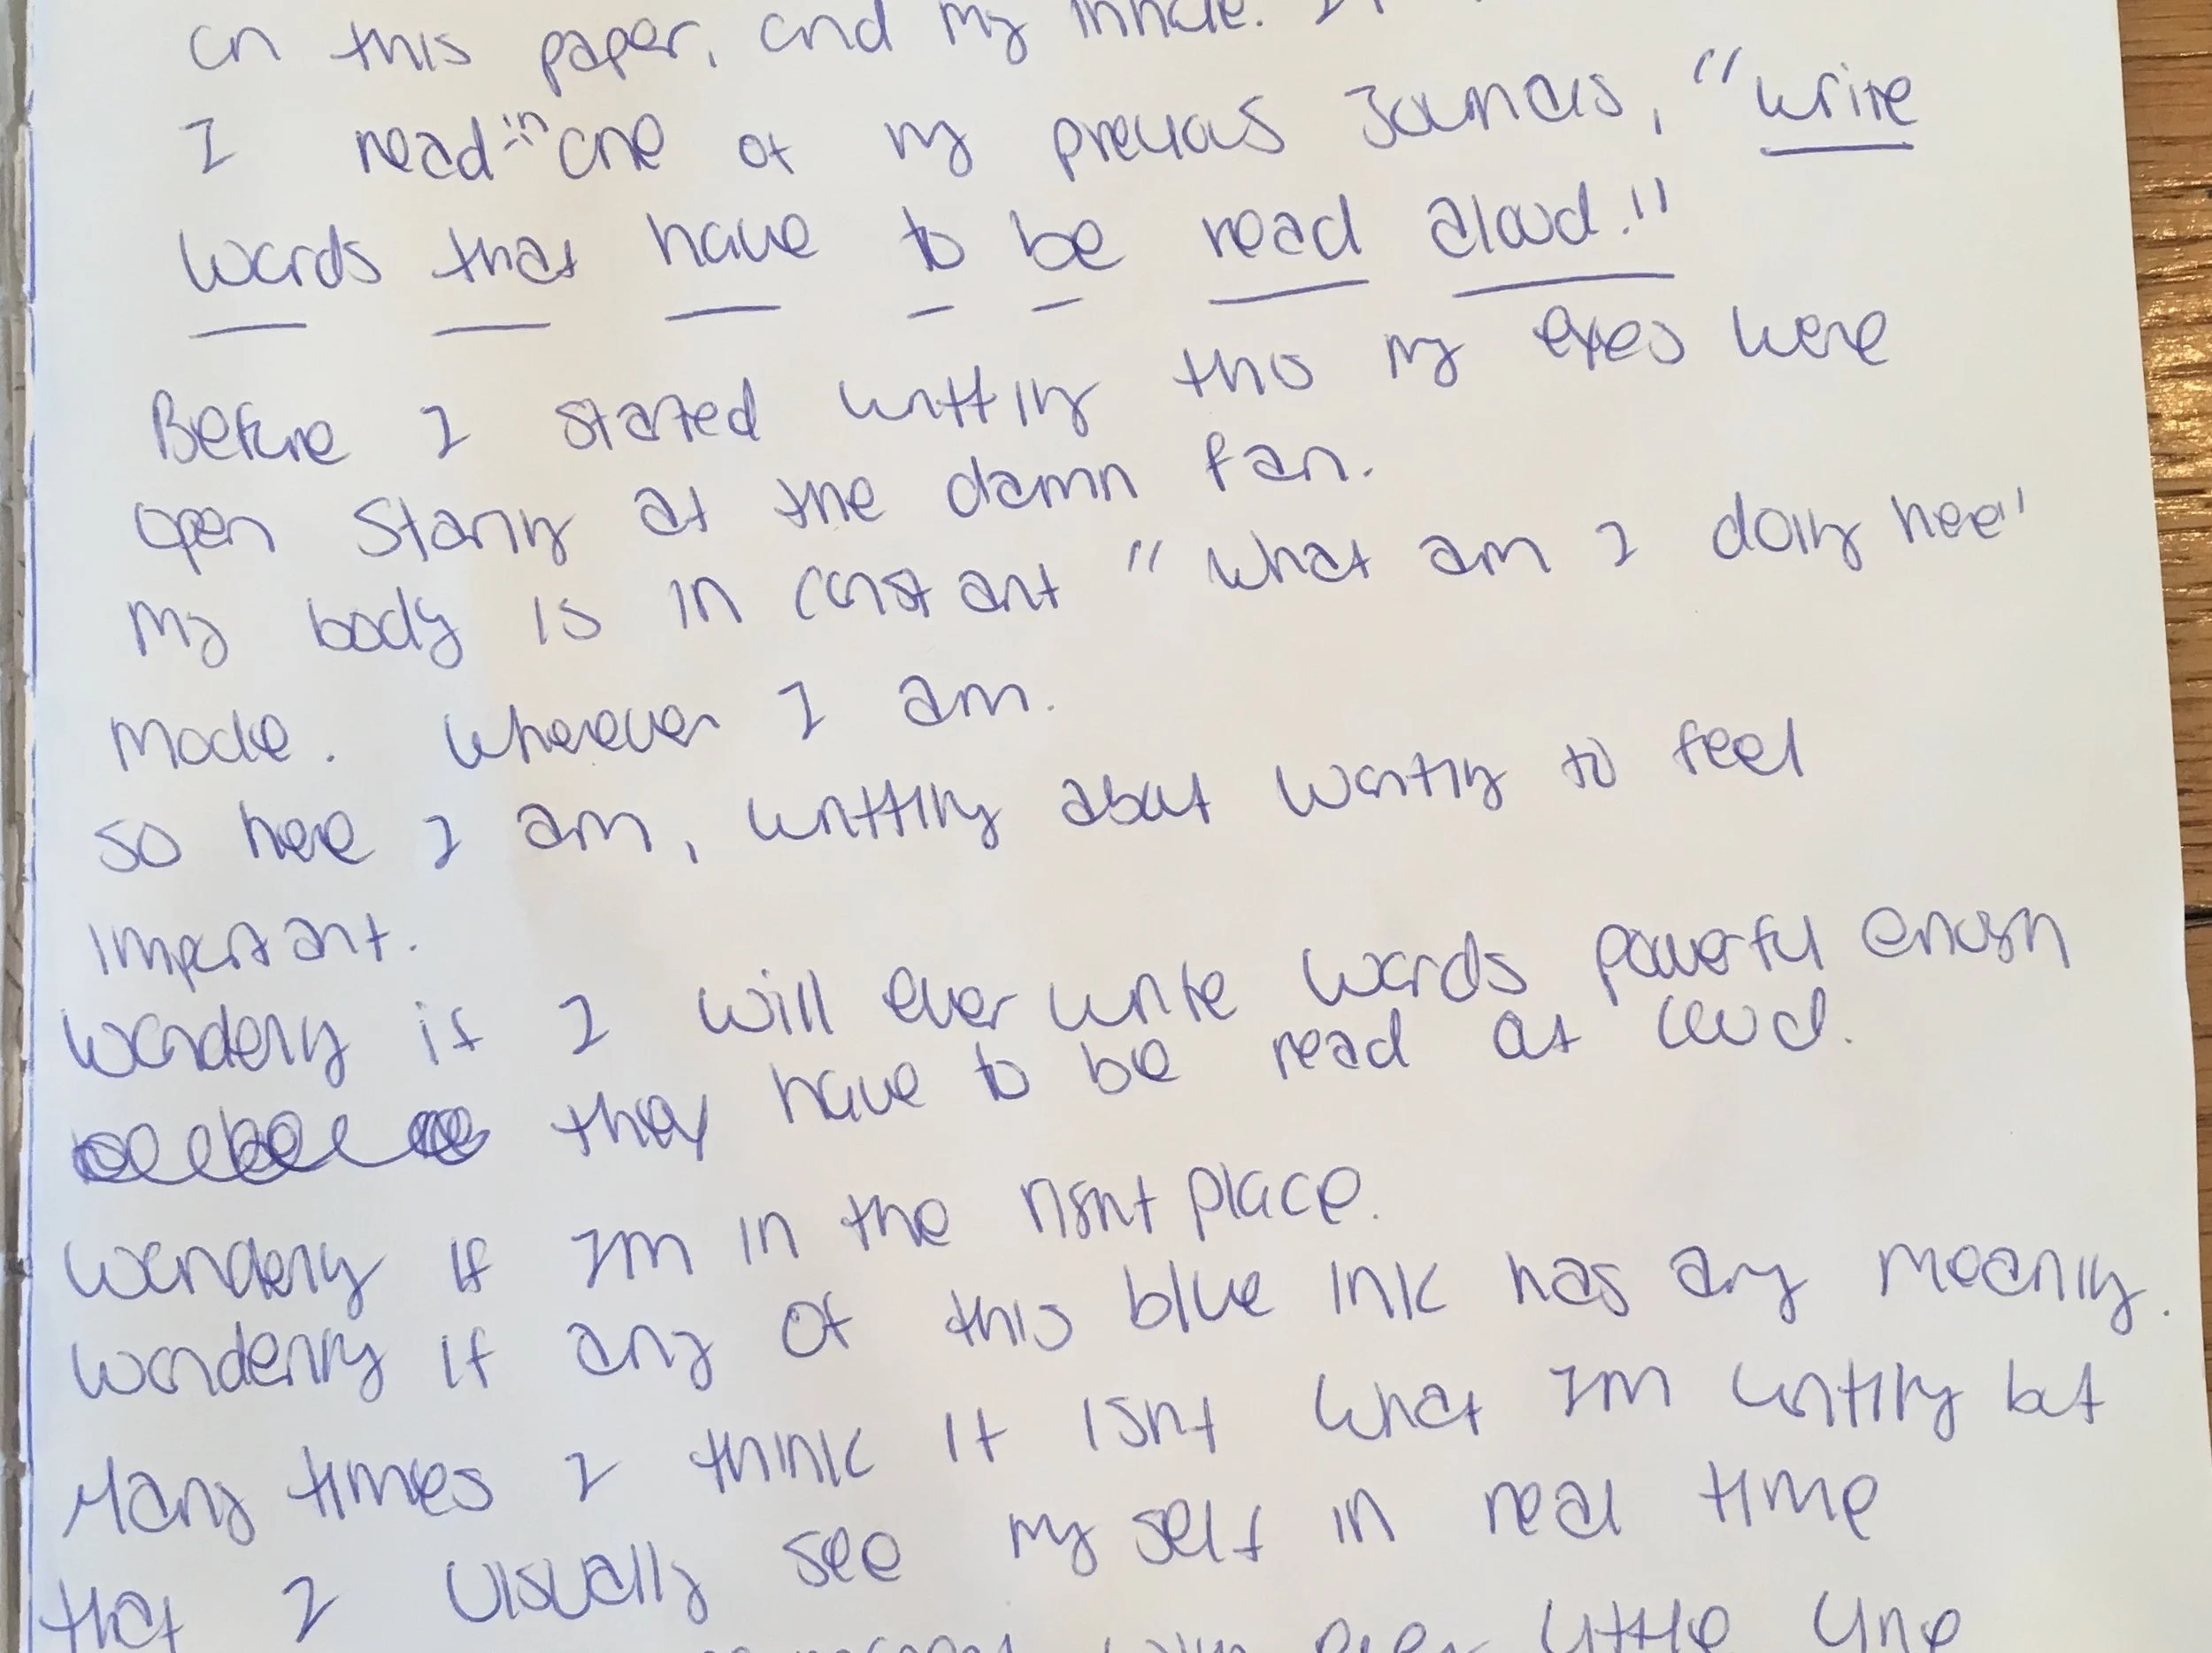 on this paper, and my
I read in one of my previous Journals, "write
words that have to be read aloud."
Before I started writting this my eyes were
open staring at the damn fan.
My body is in constant "what am I doing here"
mode. Wherever I am.
So here I am, writting about wanting to feel
important.
Wondering if I will ever write words powerful enough
they have to be read at loud.
Wondering if Im in the right place.
Wondering if any of this blue ink has any meaning.
Many times I think it isnt what Im writting but
that I visually see my self in real time
with every little line